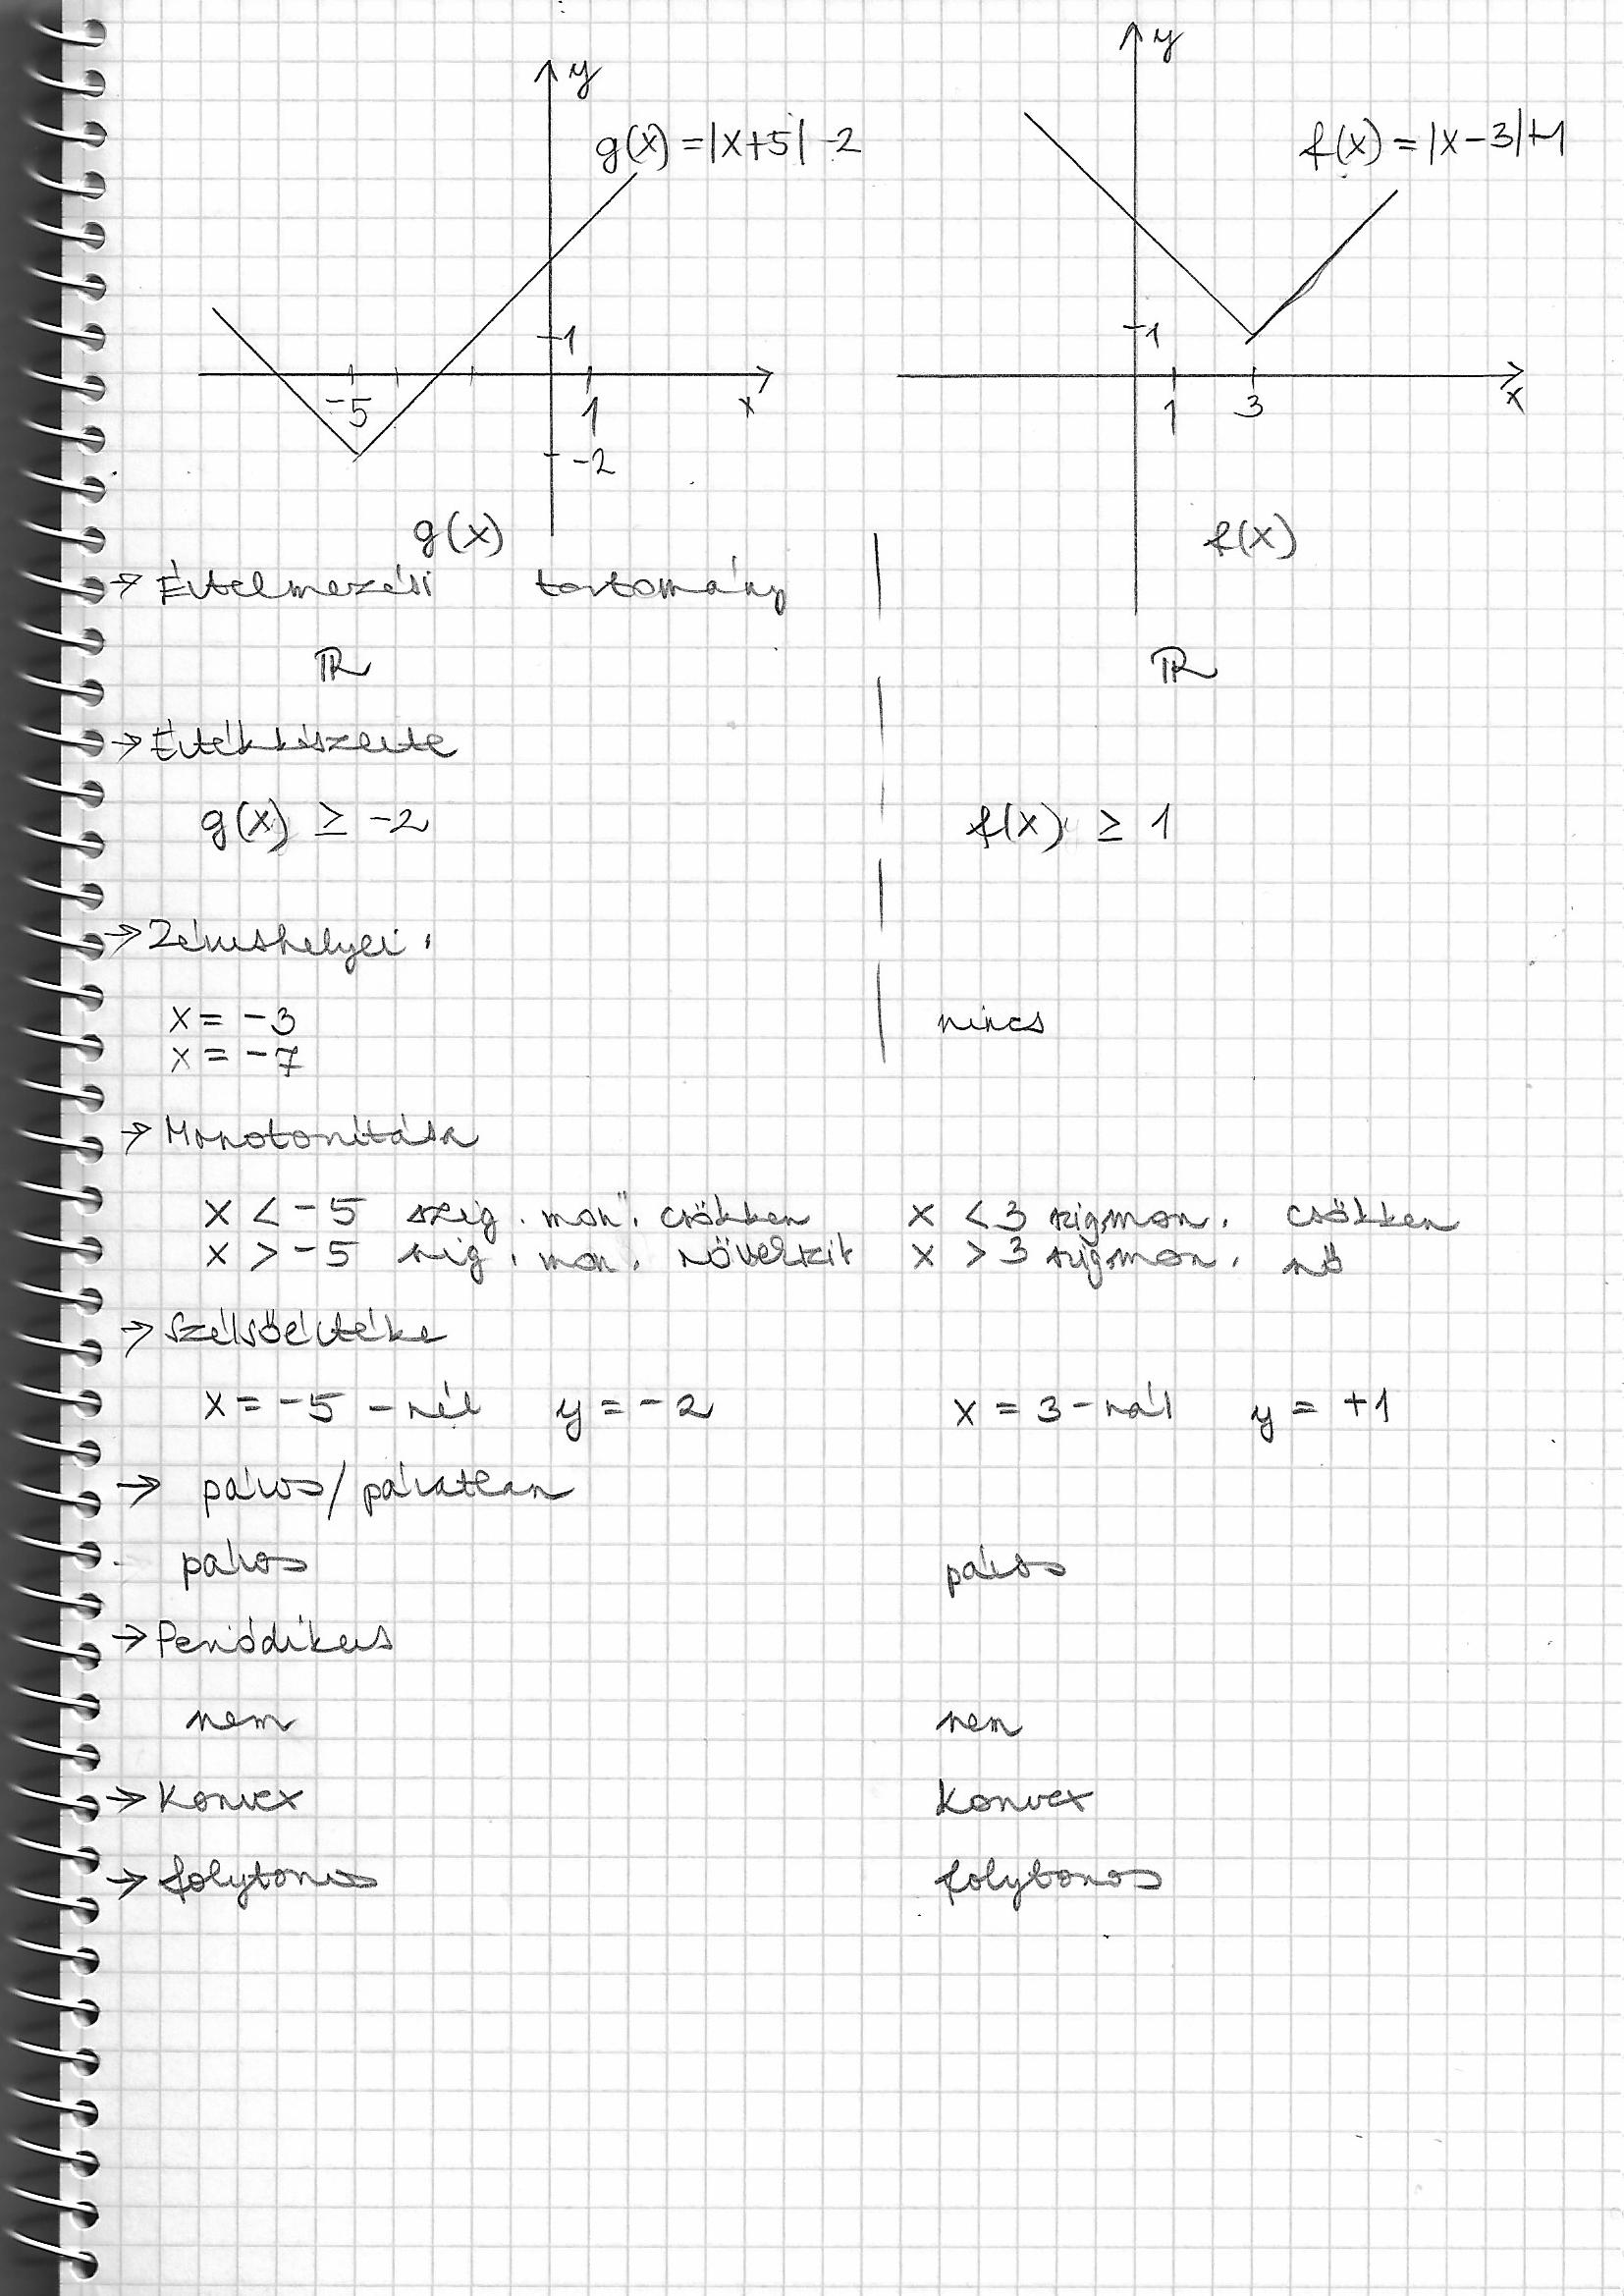 y
y
g(x) = |x+5| -2
f(x) = |x-3|+1
1
1
-5
1
x
1
3
x
-2
g(x) f(x)
→ Értelmezési tartomány
ℝ ℝ
→ Értékkészlete
g(x) ≥ -2 f(x) ≥ 1
→ Zérushelyei
x = -3 nincs
x = -7
→ Monotonitása
x < -5 szig. mon. csökken x < 3 szigmon. csökken
x > -5 szig. mon. növekszik x > 3 szigmon. nő
→ Szélsőértéke
x = -5 -nél y = -2 x = 3 -nál y = +1
→ páros/páratlan
páros páros
→ Periódikus
nem nem
→ Konvex Konvex
→ folytonos folytonos